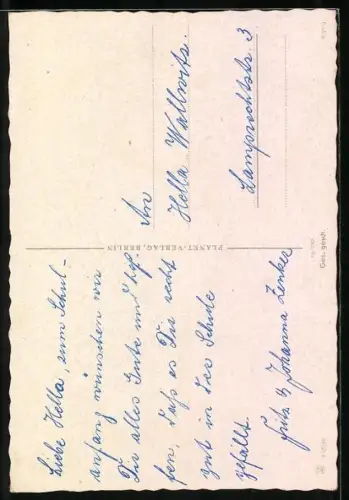 Liebe Hella, zum Schul-
anfang wünschen wir
Dir alles Gute und hof
fen, daß es Dir recht
gut in der Schule
gefällt.
Fritz & Johanna Zenker
PLANET-VERLAG, BERLIN
Ges. gesch.
An
Hella Wallwitz.
Lamprechtstr. 3